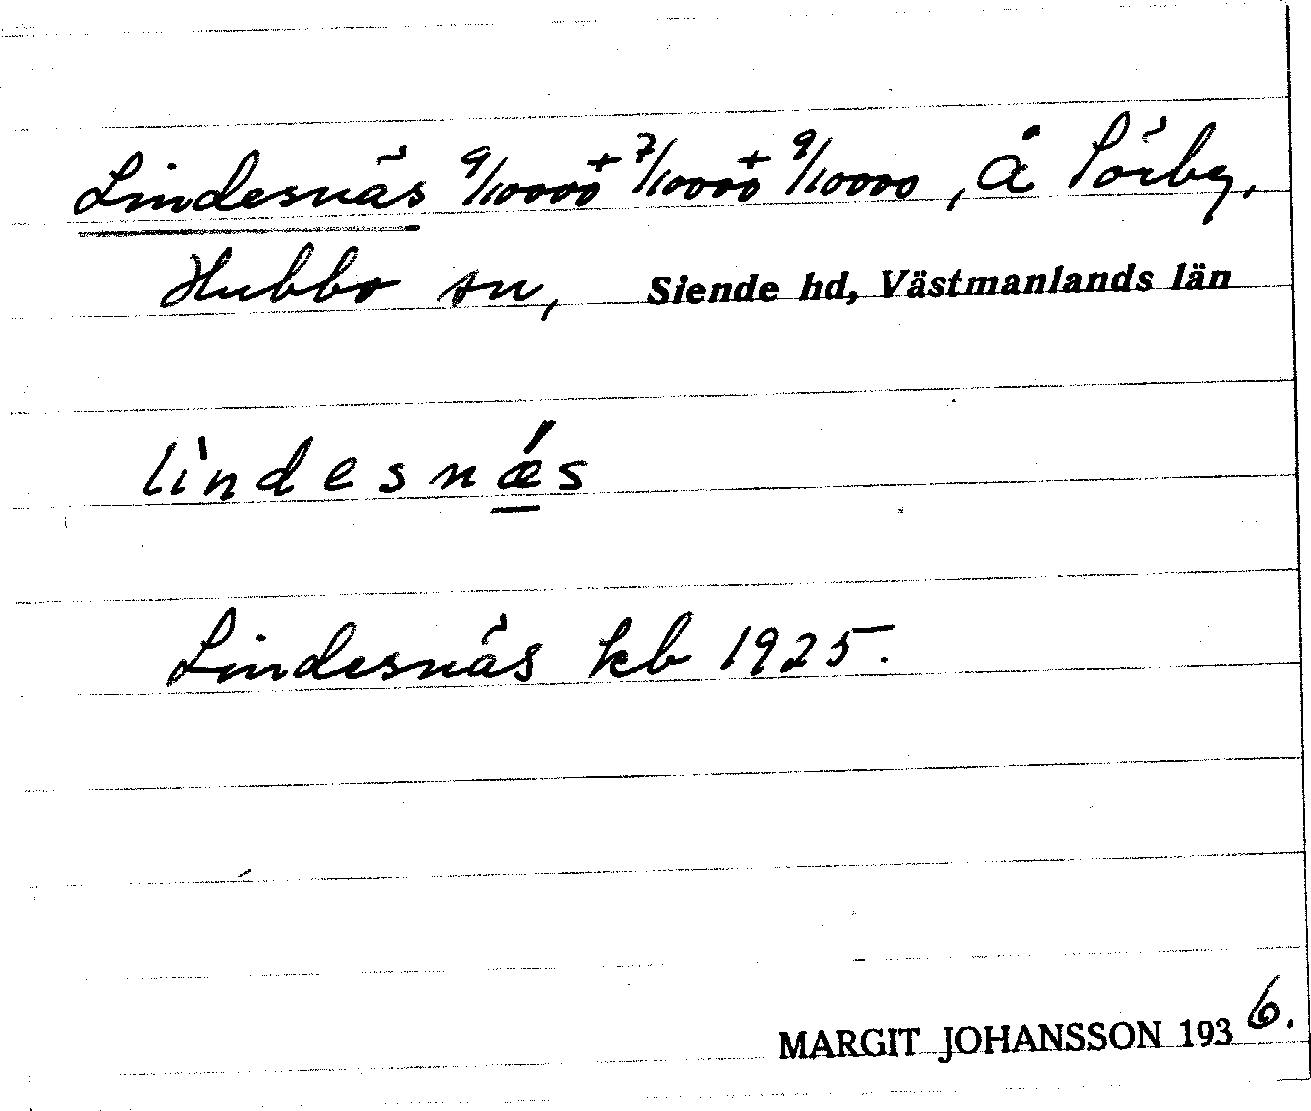 Lindesnäs 9/10000 + 7/10000 + 9/10000, Å Sörby,
Hubbo sn, Siende hd, Västmanlands län
lìndesnǽs
Lindesnäs kb 1925.
MARGIT JOHANSSON 1936.